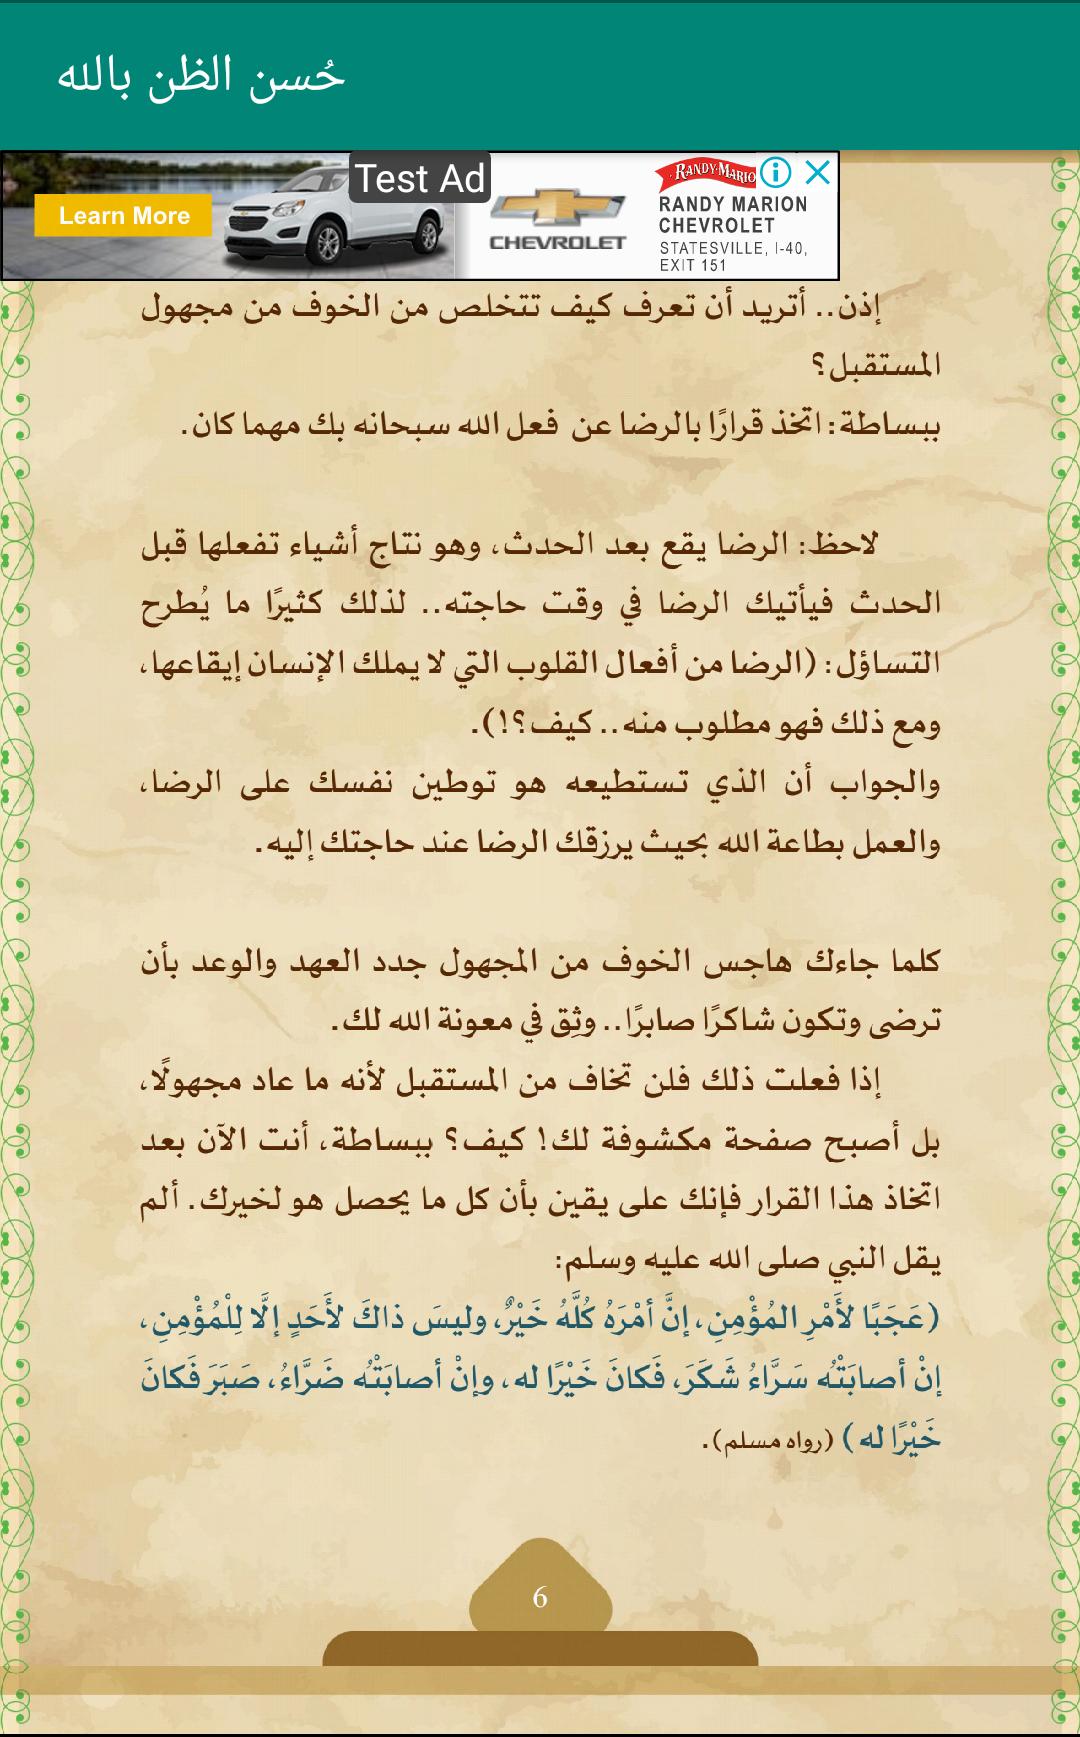 حُسن الظن بالله
Test Ad
Learn More
CHEVROLET
RANDY MARION
RANDY MARION
CHEVROLET
STATESVILLE, I-40,
EXIT 151
إذن.. أتريد أن تعرف كيف تتخلص من الخوف من مجهول
المستقبل؟
ببساطة: اتخذ قرارًا بالرضا عن فعل الله سبحانه بك مهما كان.
لاحظ: الرضا يقع بعد الحدث، وهو نتاج أشياء تفعلها قبل
الحدث فيأتيك الرضا في وقت حاجته.. لذلك كثيرًا ما يُطرح
التساؤل: (الرضا من أفعال القلوب التي لا يملك الإنسان إيقاعها،
ومع ذلك فهو مطلوب منه.. كيف؟!).
والجواب أن الذي تستطيعه هو توطين نفسك على الرضا،
والعمل بطاعة الله بحيث يرزقك الرضا عند حاجتك إليه.
كلما جاءك هاجس الخوف من المجهول جدد العهد والوعد بأن
ترضى وتكون شاكرًا صابرًا.. وثِق في معونة الله لك.
إذا فعلت ذلك فلن تخاف من المستقبل لأنه ما عاد مجهولًا،
بل أصبح صفحة مكشوفة لك! كيف؟ ببساطة، أنت الآن بعد
اتخاذ هذا القرار فإنك على يقين بأن كل ما يحصل هو لخيرك. ألم
يقل النبي صلى الله عليه وسلم:
(عَجَبًا لأَمْرِ المُؤْمِنِ، إنَّ أمْرَهُ كُلَّهُ خَيْرٌ، وليسَ ذاكَ لأَحَدٍ إلَّا لِلْمُؤْمِنِ،
إنْ أصابَتْهُ سَرَّاءُ شَكَرَ، فَكانَ خَيْرًا له، وإنْ أصابَتْهُ ضَرَّاءُ، صَبَرَ فَكانَ
خَيْرًا له) (رواه مسلم).
6